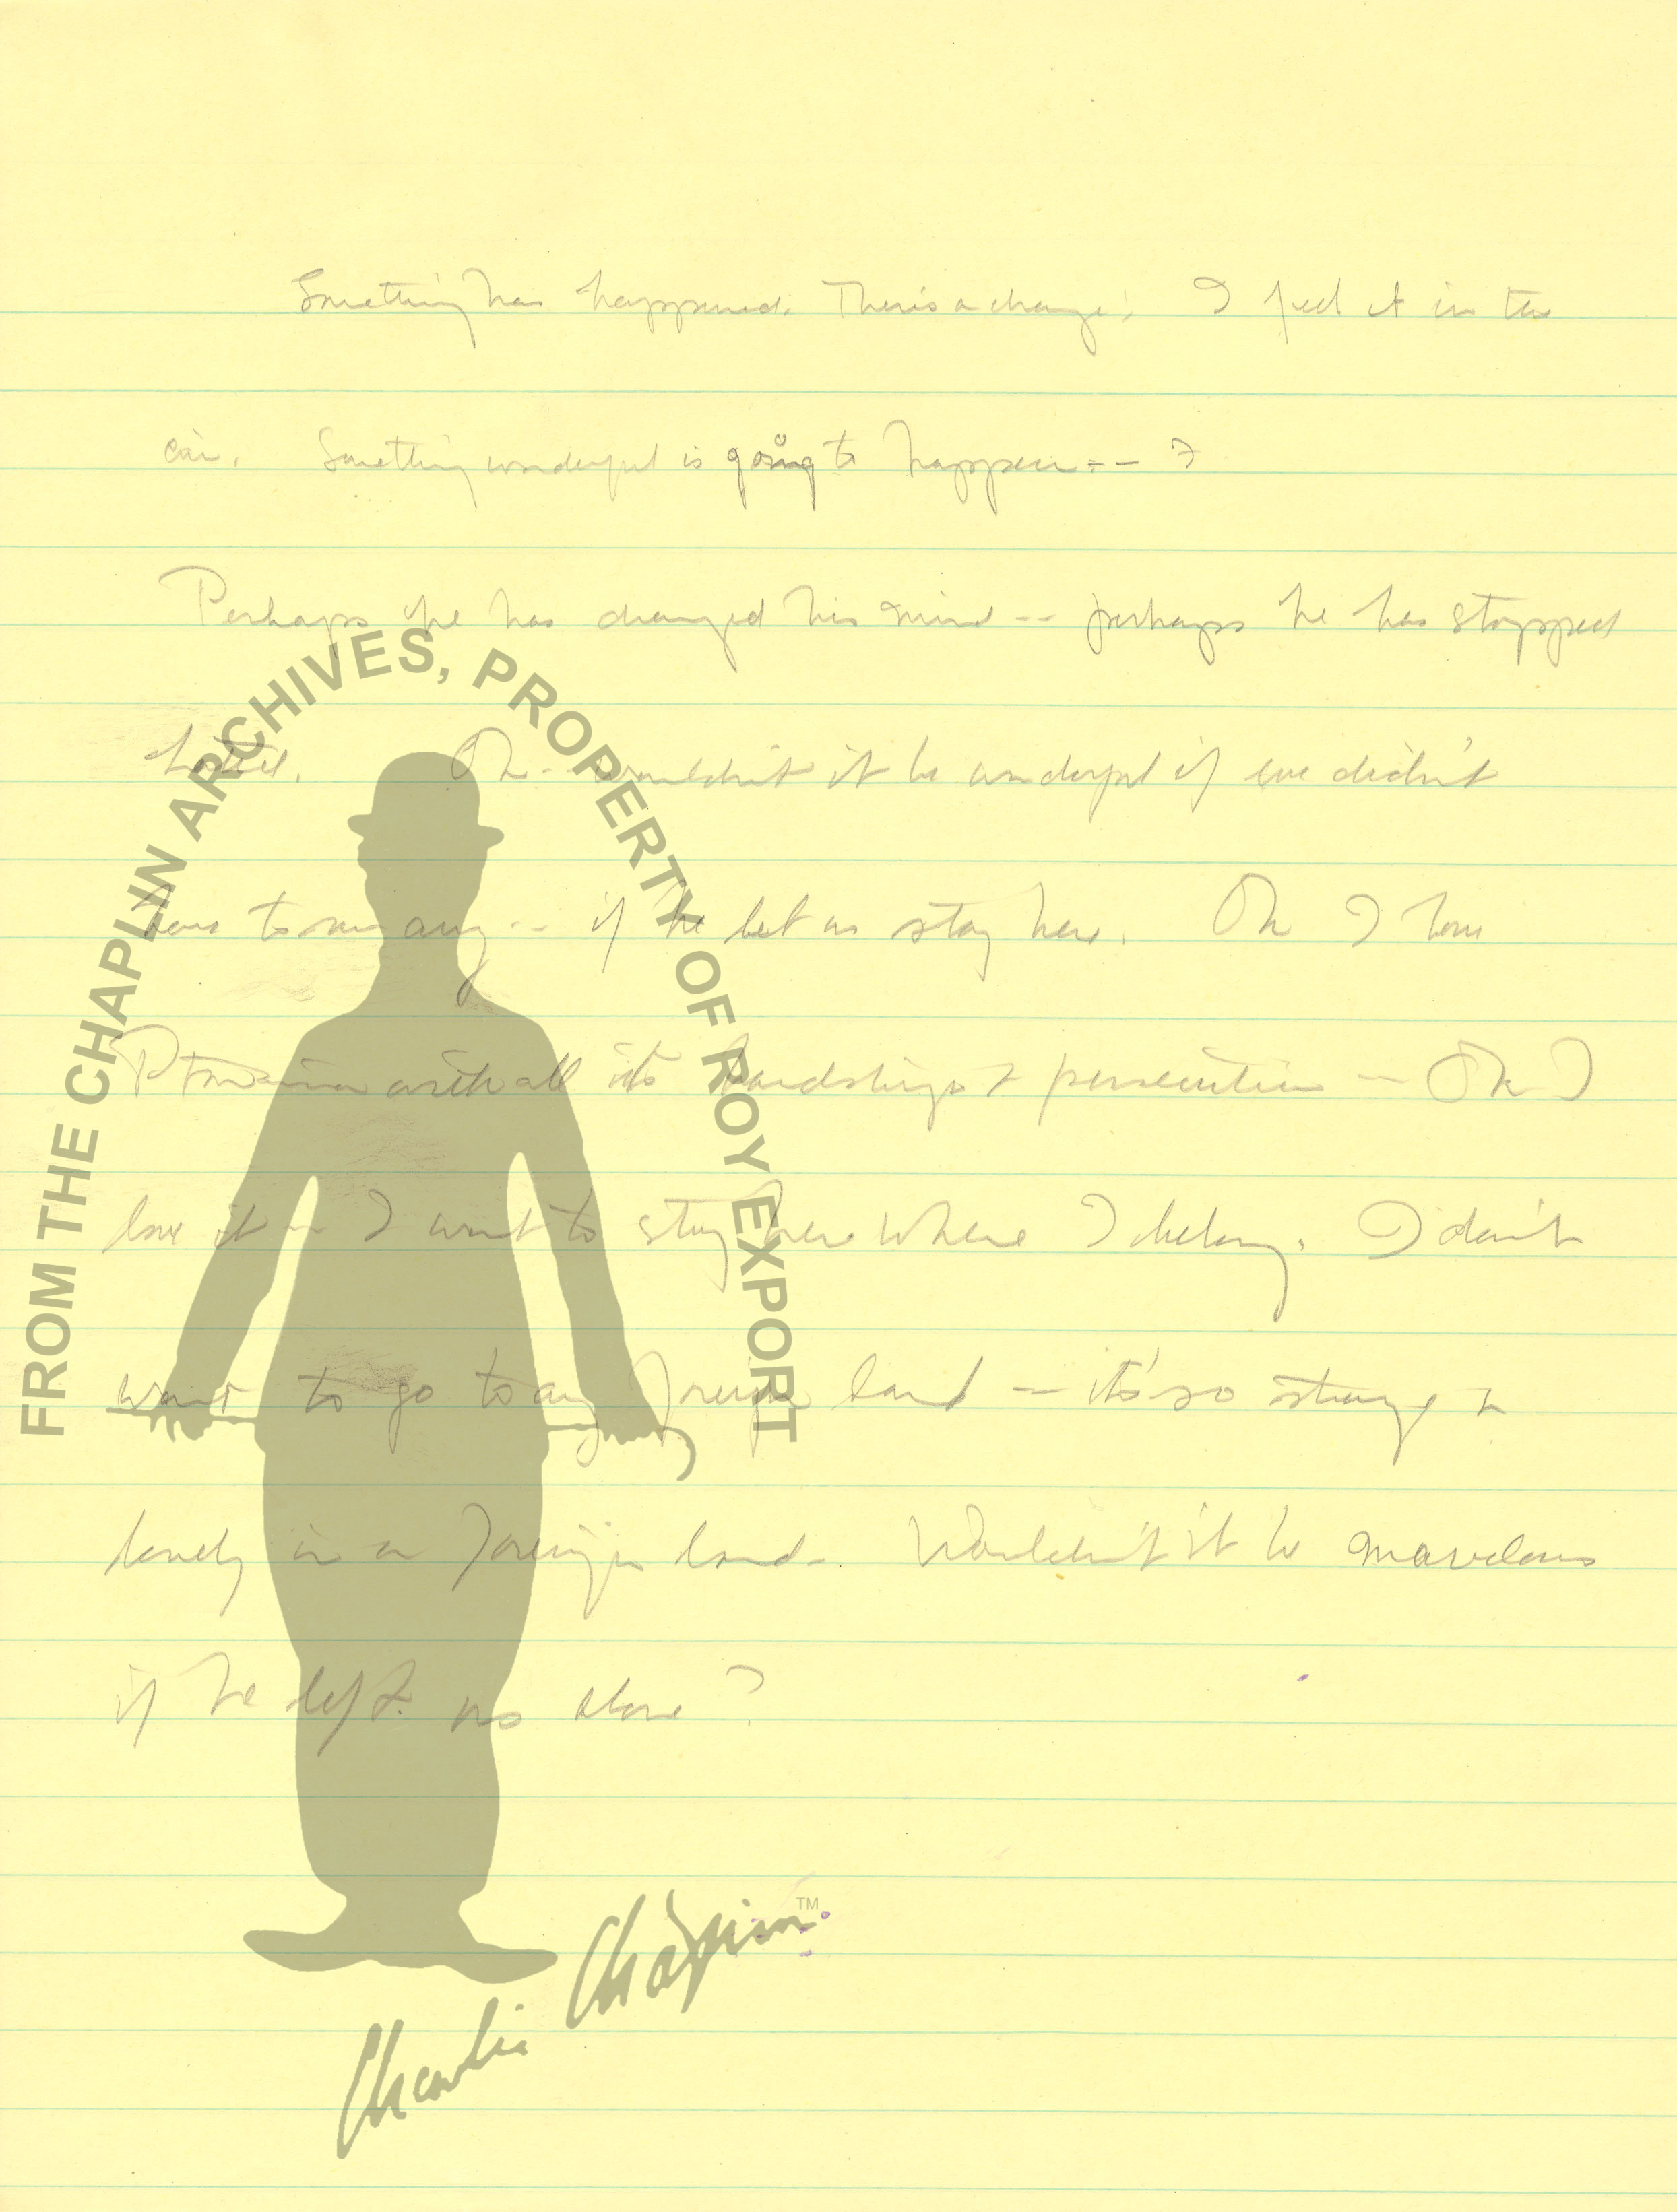 Something has happened. There's a change. I feel it in the
air. Something wonderful is going to happen -- ?
Perhaps he has changed his mind -- perhaps he has stopped
Oh -- wouldn't it be wonderful if we didn't
have to run away -- if he let us stay here. Oh I love
with all its hardships & persecution -- Oh I
love it -- I want to stay here where I belong. I don't
want to go to any foreign land -- it's so strange &
lonely in a foreign land. Wouldn't it be marvelous
if he left us alone?
FROM THE CHAPLIN ARCHIVES, PROPERTY OF ROY EXPORT
Charlie Chaplin™